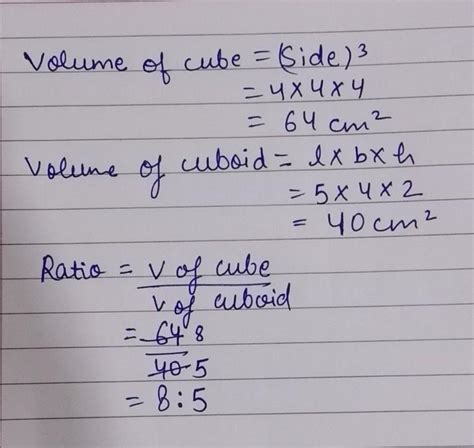 Volume of cube = (Side)³
= 4 × 4 × 4
= 64 cm²
Volume of cuboid = l × b × h
= 5 × 4 × 2
= 40 cm²
Ratio = V of cube
V of cuboid
= 64 8
40 5
= 8 : 5